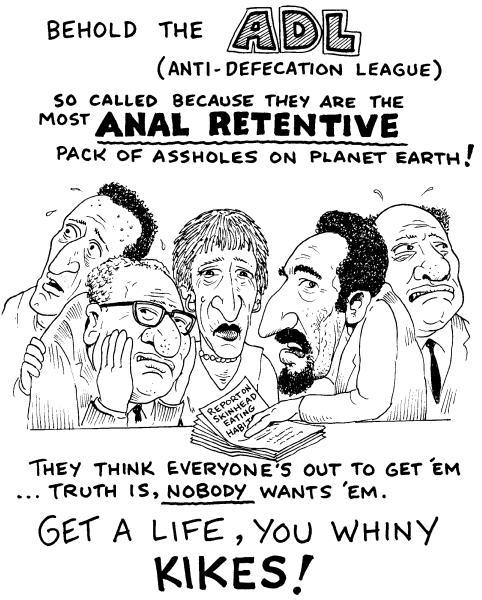 BEHOLD THE ADL
(ANTI-DEFECATION LEAGUE)
SO CALLED BECAUSE THEY ARE THE
MOST ANAL RETENTIVE
PACK OF ASSHOLES ON PLANET EARTH!
REPORT ON
SKINHEAD
EATING
HABITS
THEY THINK EVERYONE'S OUT TO GET 'EM
... TRUTH IS, NOBODY WANTS 'EM.
GET A LIFE, YOU WHINY
KIKES!